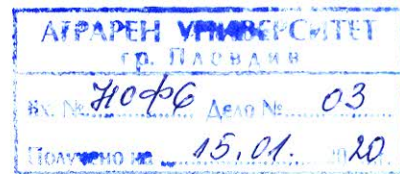 АГРАРЕН УНИВЕРСИТЕТ
гр. Пловдив
Вх. № НОФ6 Дело № 03
Получено на 15.01. 2020